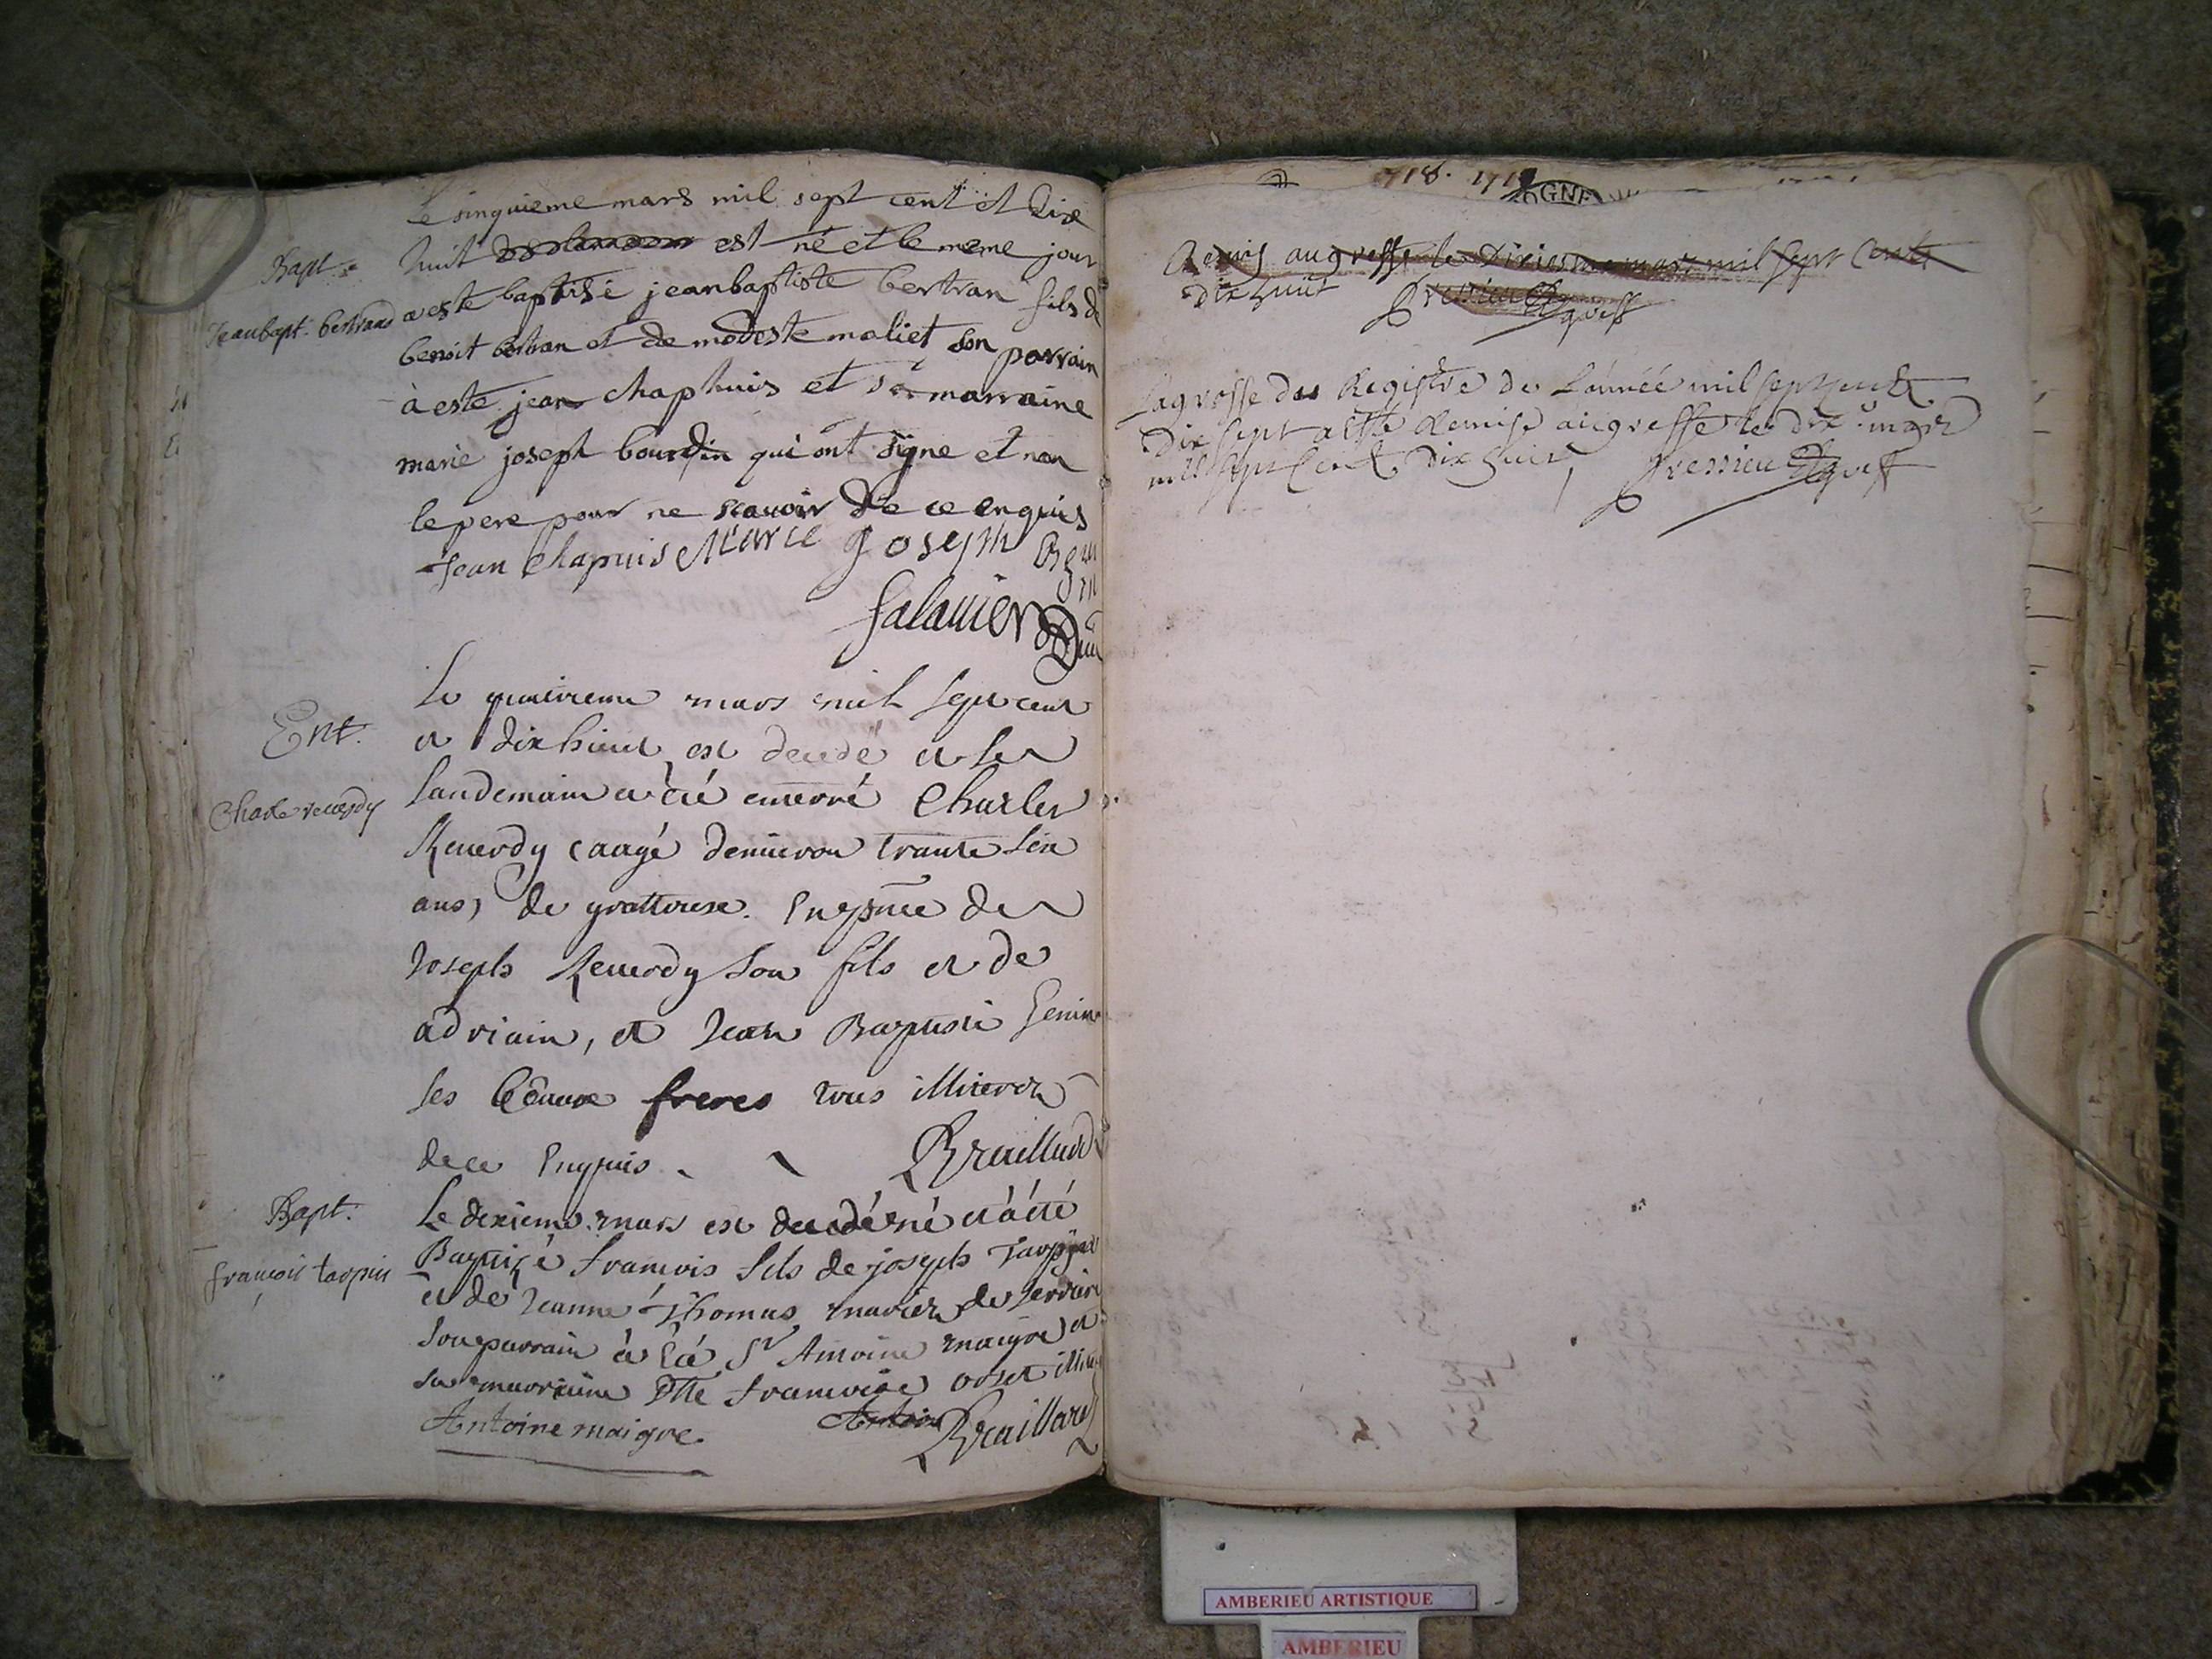 Le sinquieme mars mil sept cent et dixe
huit est né et le meme jour
Bapt.
Jeanbapt. bertrand
a este baptisé jeanbaptiste bertran fils de
benoit bertran et de modeste maliet son parrain
à este jean chaphuis et sa marraine
marie joseph bourdin qui ont signe et non
le pere pour ne scauoir de ce enquis
Jean Chapuis Marie Joseph
Salauier
Ent.
Charle reuerdy
Le quatrieme mars mil sept cent
et dixhuict est decedé et le
landemain a été enterré Charles
Reuerdy (aagé denuiron trante six
ans) de grattoux. En pnce de
Joseph Reuerdy son fils et de
adriain, et Jean Baptiste Genin
ses beaux freres tous illiterez
de ce Enquis
Braillard
Bapt.
françois tarpin
Le dixieme mars est decedé né et a été
Baptizé francois fils de joseph Tarpin
et de Jeanne Thomas mariez de
son parrain a été Sr Antoine maigre et
sa marraine Dlle francoise orset
Antoine maigre.
Antoine
Braillard
1718. 1719
OGNE
Remis au greffe le dixiesme mars mil sept cents
dix huit
Lagrosse des Registre de L'année mil sept cent
dix sept a esté Remise au greffe le dix mars
mil sept cent dix huit
AMBERIEU ARTISTIQUE
AMBERIEU